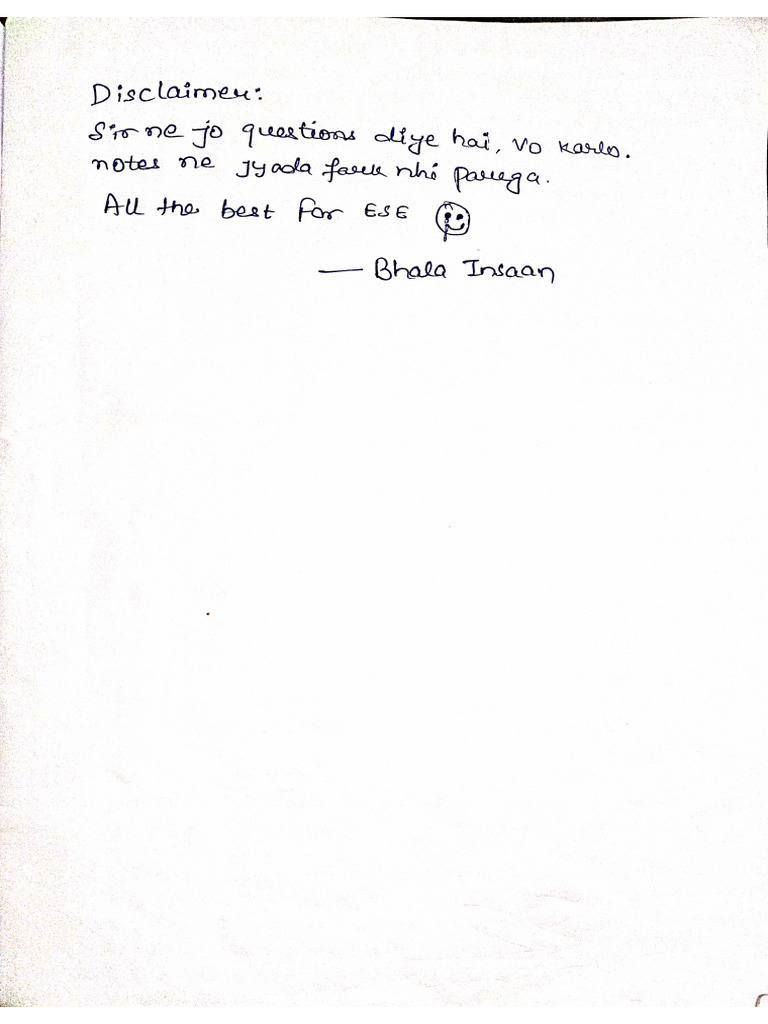 Disclaimer:
Sir ne jo questions diye hai, vo karlo.
notes ne jyada fark nhi parega.
All the best for ESE
— Bhala Insaan